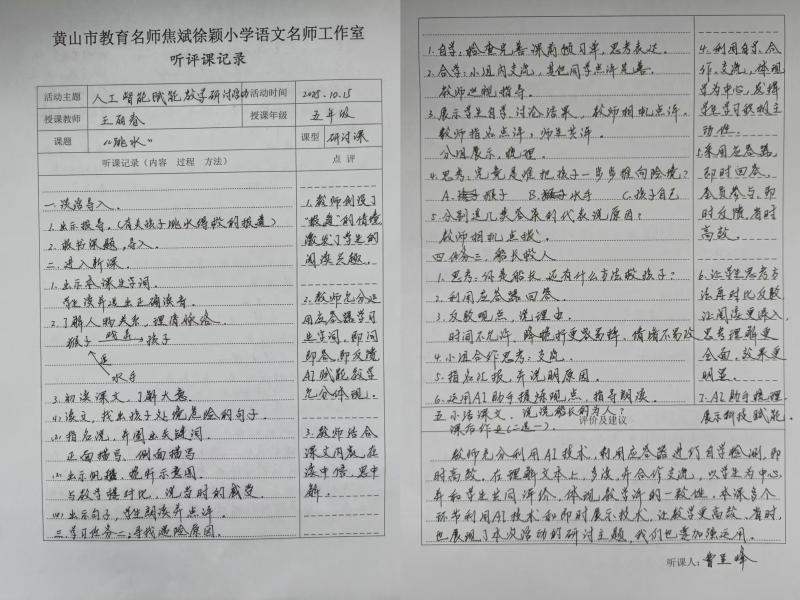 黄山市教育名师焦斌徐颖小学语文名师工作室
听评课记录
活动主题 人工智能赋能教学研讨活动 活动时间 2025.10.15
授课教师 王丽春 授课年级 五年级
课题 《跳水》 课型 研讨课
听课记录(内容 过程 方法) 点评
一.谈话导入。
1.出示报导。(有关孩子跳水得救的报道)
2.板书课题,导入。
二.进入新课。
1.出示本课生字词。
学生读并选出正确读音。
2.了解人物关系,理清脉络
猴子 孩子
逗
水手
3.初读课文,了解大意。
(1)读文,找出孩子处境危险的句子
(2)指名说,并圈出关键词。
正面描写,侧面描写
(3)出示桅杆、甲板示意图。
与教学楼对比,说当时的感受。
(4)出示句子,学生朗读并点评。
三.学习任务二:寻找遇险原因。
1.教师创设了
“报道”的情境
激发了学生的
阅读兴趣。
2.教师充分运
用应答器学习
生字词,即问
即答,即反馈
AI赋能教学
充分体现。
3.教师结合
课文内容,在
读中悟,思中
解。
1.自学,检查完善课前预习单,思考表达。
2.合学:小组内交流,其他同学点评完善。
教师巡视指导。
3.展示学生自学、讨论结果,教师相机点评。
教师指名点评,师生共评。
分组展示,梳理。
4.思考:究竟是谁把孩子一步步推向险境?
A.猴子 B.水手 C.孩子自己
5.分别选几类答案的代表说原因?
教师相机点拨。
四.任务三,船长救人
1.思考:你是船长,还有什么方法救孩子?
2.利用应答器回答。
3.反驳观点,说理由。
时间不允许、降桅杆更容易摔、情绪不易改
4.小组合作思考:交流。
5.指名汇报,并说明原因。
6.运用AI助手提炼观点,指导朗读。
五.小结课文,说说船长的为人?
课后作业(二选一)。
4.利用自学、合
作、交流,体现
学为中心,发挥
学生学习积极主
动性。
5.采用应答器,
即时回答,
全员参与,即
时反馈,省时
高效。
6.让学生思考方
法再对比反驳
让阅读更深入,
思考理解更
全面,效果更
明显。
7.AI助手梳理,
展示科技赋能。
评价及建议
教师充分利用AI技术,利用应答器进行自学检测,即
时高效,在理解文本上,多读,并合作交流,以学生为中心,
并和学生共同评价,体现教学评的一致性,本课多个
环节利用AI技术和即时展示技术,让教学更高效、省时,
也展现了本次活动的研讨主题,我们也要加强运用。
听课人: